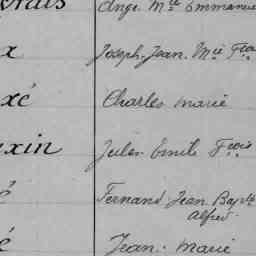 Ange Mie Emmanue
x Joseph-Jean. Mie Fco
xé Charles Marie
xin Jules Emile Fcois
é Fernand Jean Bapte
Alfred
é Jean. Marie